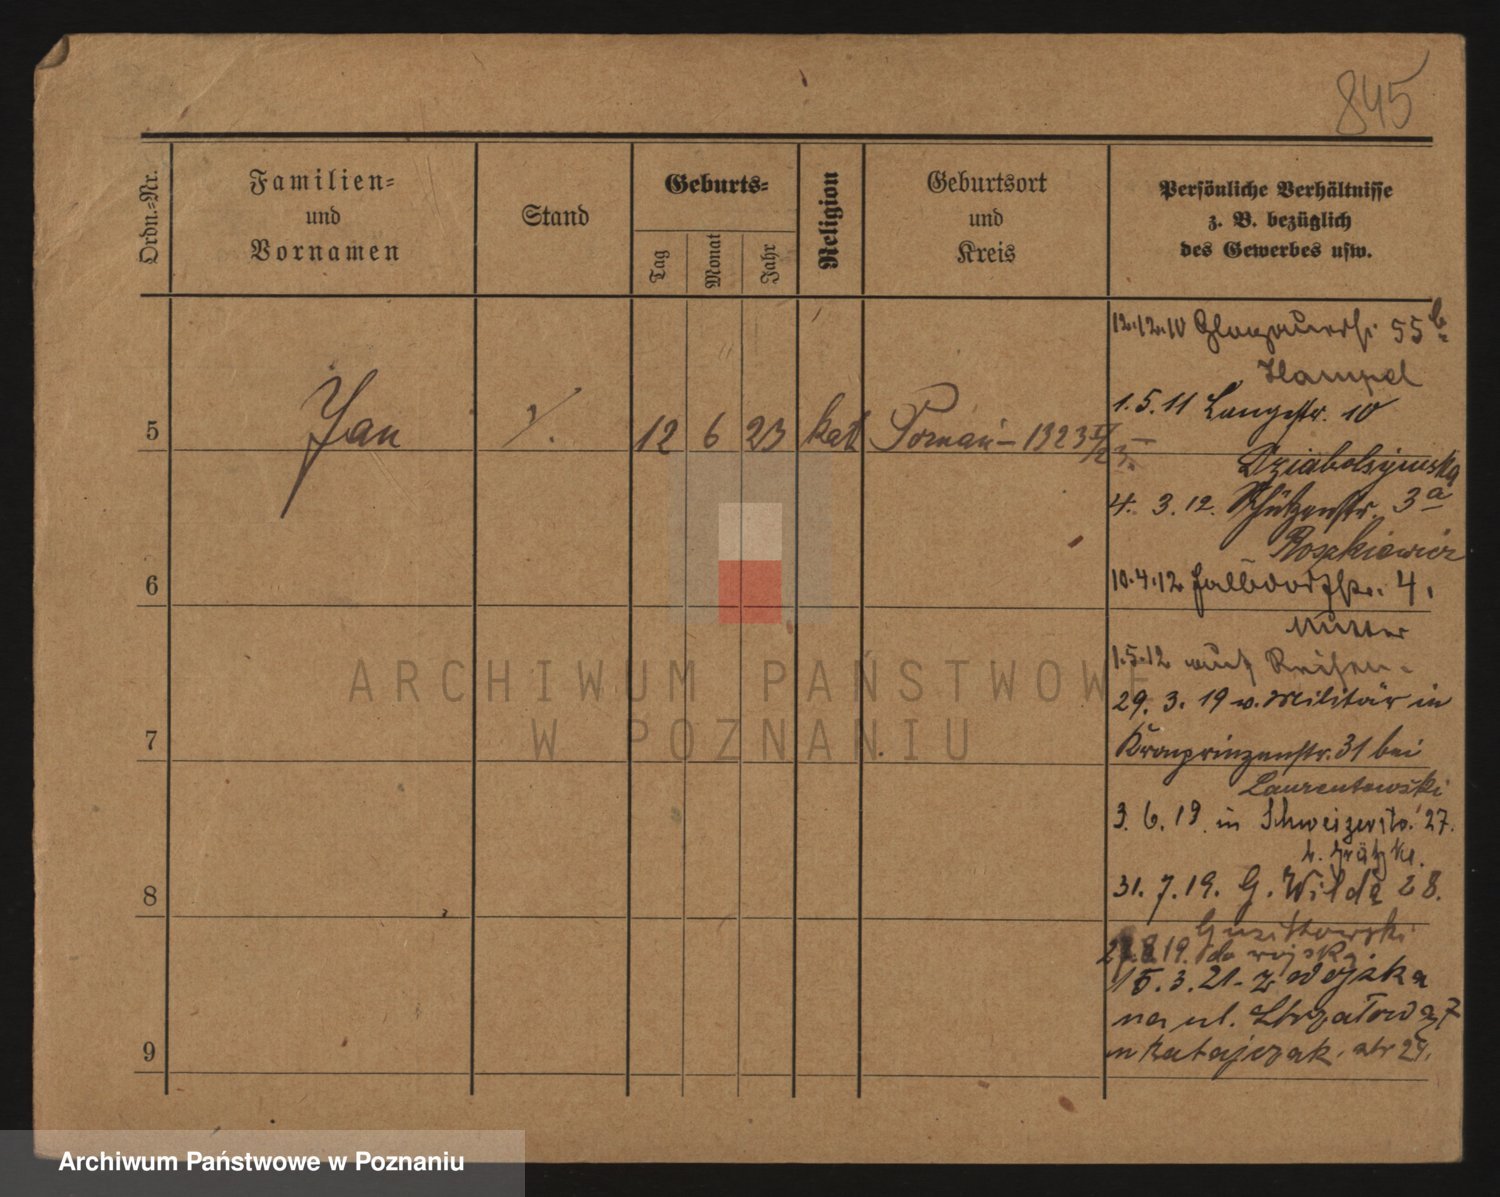 845
Ordn.-Nr.
Familien-
und
Vornamen
Stand
Geburts-
Tag
Monat
Jahr
Religion
Geburtsort
und
Kreis
Persönliche Verhältnisse
z. B. bezüglich
des Gewerbes usw.
5
Jan
12
6
23
kat
Poznań - 1923
6
7
8
9
12.12.10 Glogauerstr. 55 b
Hampel
1.5.11 Langestr. 10
4. 3. 12. Schützenstr. 3a
Roszkiewicz
10.4.12 Halbdorfstr. 4.
Mutter
1.5.12 auf Reisen.
29. 3. 19 v. Militär in
Kronprinzenstr. 31 bei
Laurentowski
3. 6. 19. in Schweizerstr. 27.
31. 7. 19. G. Wilda 28.
8. 19. do wojska.
15. 3. 21 - z wojska
na ul. Strzałowa 7
m Ratajczak.
ARCHIWUM PAŃSTWOWE
W POZNANIU
Archiwum Państwowe w Poznaniu